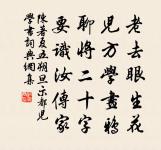 老去眼生花
兒方學畫鴉
聊將二十字
要識汝傳家
陳著夏五朔旦示都兒
學書詞典網集